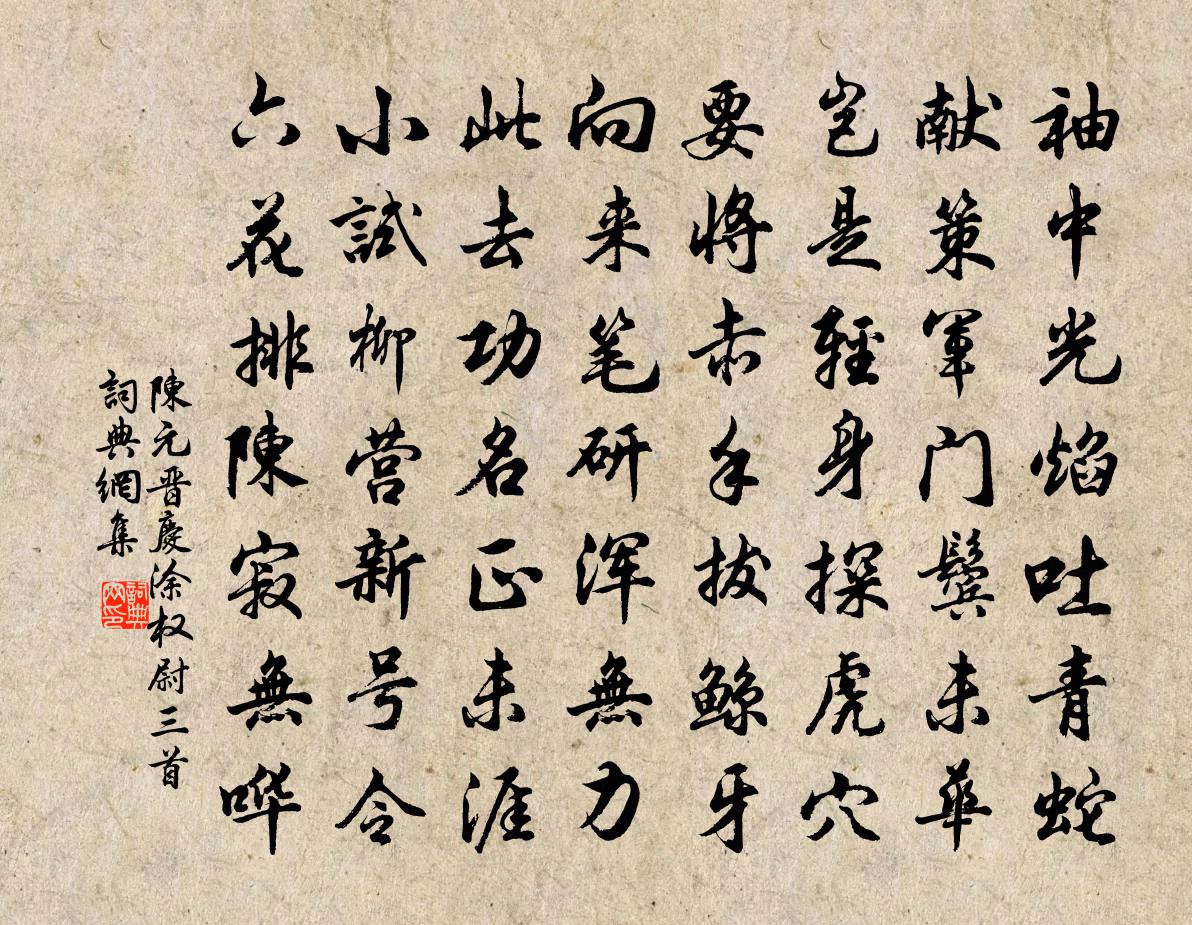 袖中光焰吐青蛇
献策軍门鬓未華
岂是輕身探虎穴
要将赤手拔鲸牙
向来笔研浑無力
此去功名正未涯
小試柳营新号令
六花排陳寂無哗
陳元晋慶涂权尉三首
詞典網集
詞典
网印